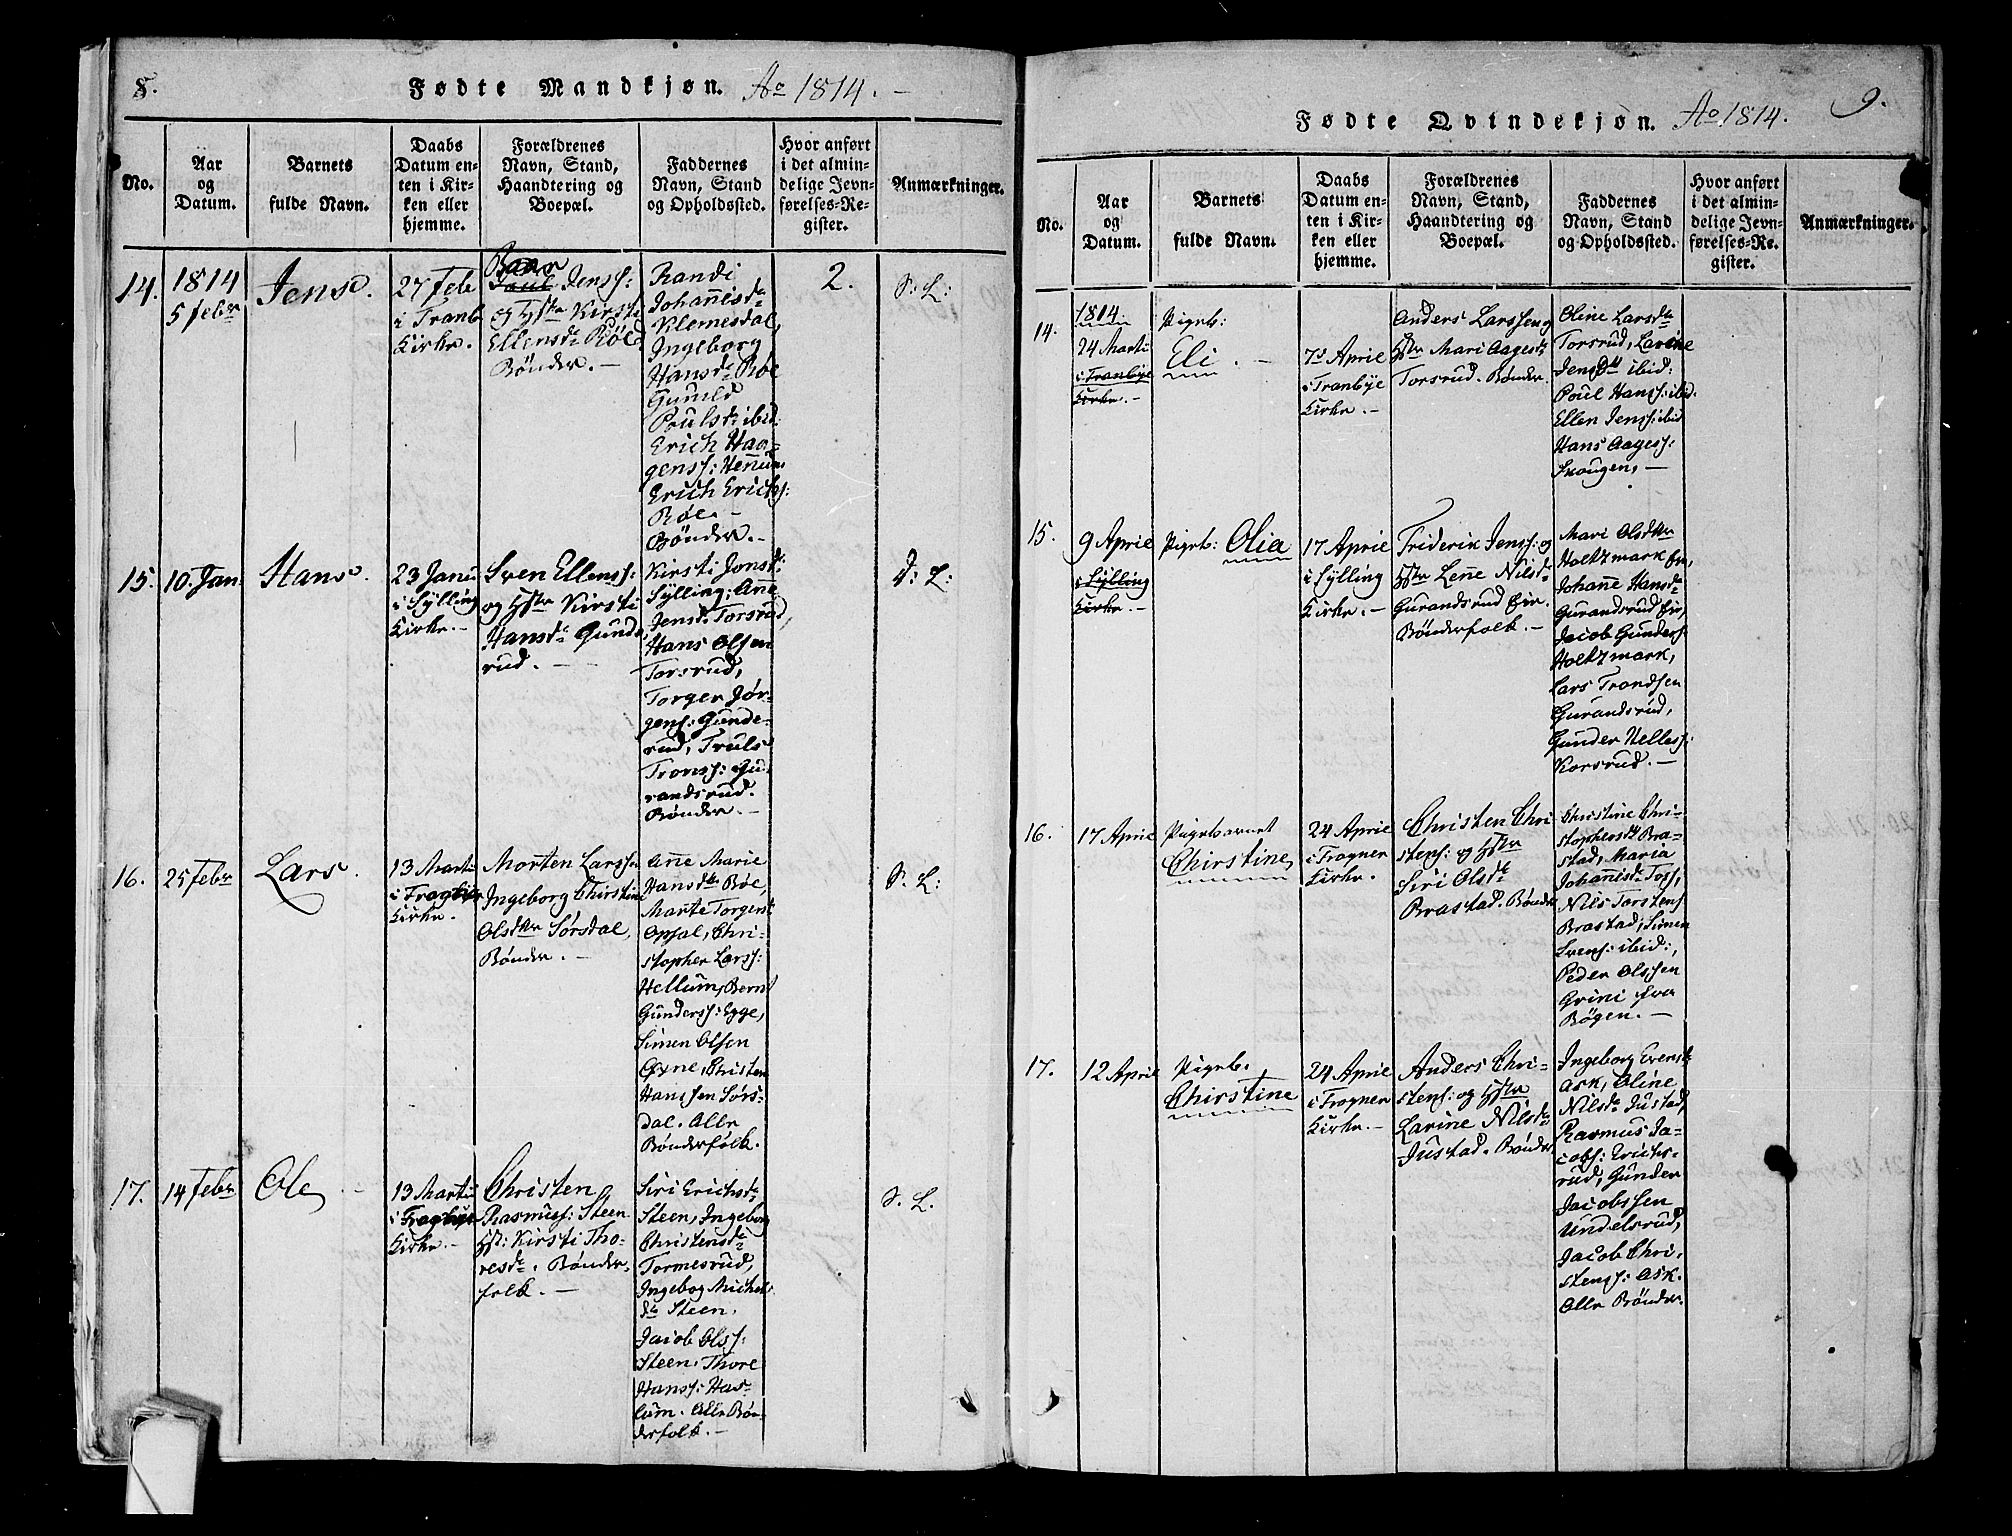 8.
Fødte Mandkjøn. Ao 1814. –
No.
Aar
og
Datum.
Barnets
fulde Navn.
Daabs
Datum en-
ten i Kir-
ken eller
hjemme.
Forældrenes
Navn, Stand,
Haandtering og
Boepæl.
Faddernes
Navn, Stand
og Opholdssted.
Hvor anført
i det almin-
delige Jevn-
førelses-Re-
gister.
Anmærkninger.
14.
1814
5 febr
Jens.
27 Feb
i Tranb
Kirke.
Jenss:
og Hstr Kirsti
Ellensdr Röe
Bönder. –
Randi
Johanisdr
Klemesdal,
Ingeborg
Hansdr Röe
Guneld
Poulsdr ibid:
Erich Haa-
genss: Henum
Erich Erichss:
Röe. –
Bönder. –
2.
S. L:
15.
10. Jan:
Hans.
23 Janu
i Sylling
Kirke. –
Sven Ellenss:
og Hstr Kirsti
Hansdr Gunde
rud. –
Kirsti Jonsdr
Sylling, Ane
Jensdr Torsrud,
Hans Olsen
Torsrud,
Torger Jör-
gens: Gunde-
rud, Truls
Tronss: Gu-
randsrud.
Bönder. –
S: L:
16.
25 Febr
Lars.
13 Marti
i
Kirke.
Morten Larssen
Ingeborg Chirstine
Olsdtr Sörsdal,
Bönder. –
Ane Marie
Hansdtr Röe,
Marte Torgersd
Opsal, Chri-
stopher Larss:
Hellum, Bernt
Gunderss: Egge,
Simen Olsen
Christen
Hanssen Sörs-
dal. Alle
Bönderfolk.
S. L:
17.
14 Febr
Ole
13 Marti
i
Kirke. –
Christen
Rasmuss: Steen
Hstr: Kirsti Tho-
resdr. Bönder-
folk. –
Siri Erichsdr
Steen, Ingeborg
Christensdr
Tormesrud,
Ingebog Michels
dr Steen.
Jacob Olss:
Steen. Thore
Hanss: Has-
lum. Alle Bön-
derfolk. –
S. L.
9.
Fødte Qvindekjøn. Ao 1814.
No.
Aar
og
Datum.
Barnets
fulde Navn.
Daabs
Datum en-
ten i Kir-
ken eller
hjemme.
Forældrenes
Navn, Stand,
Haandtering og
Boepæl.
Faddernes
Navn, Stand
og Opholdssted.
Hvor anført
i det almin-
delige Jevn-
førelses-Re-
gister.
Anmærkninger.
14.
1814.
24 Marti
i Tranbye
Kirke. –
Pigeb:
Eli. –
7d Aprie
i Tranbye
Kirke. –
Anders Larssen og
Hstr Mari Aagesdr
Torsrud. Bönder.
Oline Larsdtr
Torsrud, Larine
Jensdtr ibid:
Poul Hanss: ibid.
Ellen Jenss: ibid
Hans Aagess:
Skougen, –
15.
9 Aprie
i Sylling
Kirke. –
Pigeb: Olia
17 Aprie
i Sylling
Kirke. –
Friderik Jenss: og
Hstr Lene Nilsdr
Gurandsrud Eir.
Bönderfolk. –
Mari Olsdtr
Holtzmark Eir,
Johane Hansdr
Gurandsrud Eir,
Jacob Gunders:
Holtzmark,
Lars Trondsen
Gurandsrud,
Gunder Helless:
Korsrud. –
16.
17 Aprie
Pigebarnet
Chirstine,
24 Aprie
i Frogner
Kirke. –
Christen Chri
stens: og Hstr
Siri Olsdr
Brastad. Bönder
Christine Chri-
stophersdtr Bra-
stad, Maria
Johanisdr
Nils Torstens:
Brastad, Simen
Svens: ibid:,
Peder Olssen
Grini fra
Bögen. –
17.
12 April
Pigeb.
Chirstine
24 Aprie
i Frogner
Kirke. –
Anders Chri-
stens: og Hstr
Larine Nilsdr
Justad. Bönder
Ingeborg Evensdr
Ask, Oline
Nilsdr Justad,
Rasmus Ja-
cobs: Erichs-
rud, Gunder
Jacobssen
Undelsrud,
Jacob Chri-
stens: Ask.
Alle Bönder.